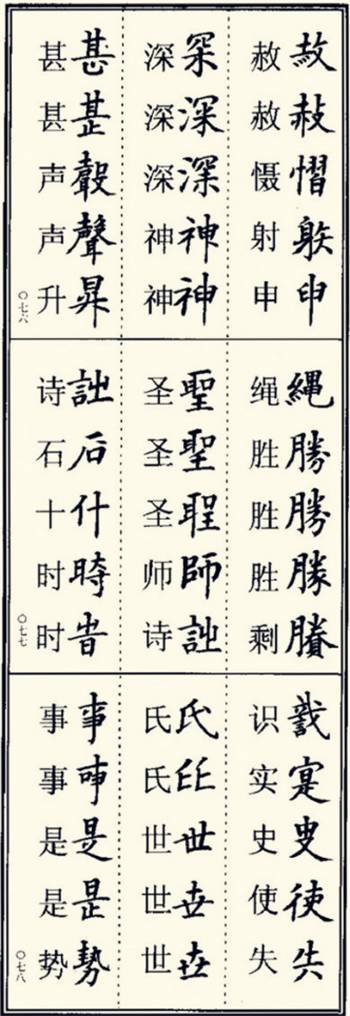 慴申
赦赦慑射申
罙深深神神
深深深神神
甚聲昇
甚甚声声升
〇七六
繩勝勝勝賸
绳胜胜胜剩
聖聖師
圣圣圣师诗
石什時旹
诗石十时时
〇七七
寔使失
识实史使失
氏世
氏氏世世世
事是昰勢
事事是是势
〇七八